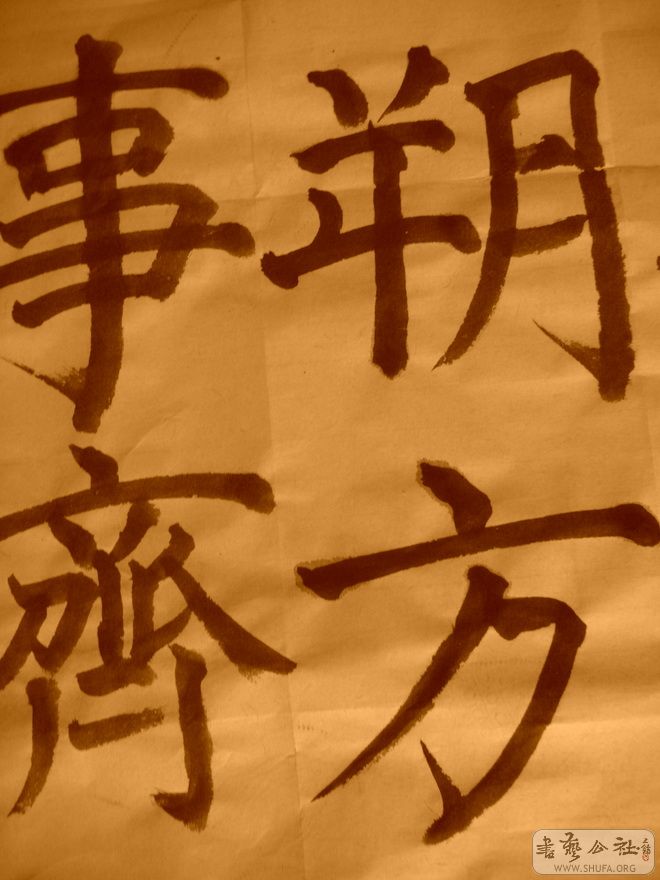 朔方
事齊
書藝公社
WWW.SHUFA.ORG